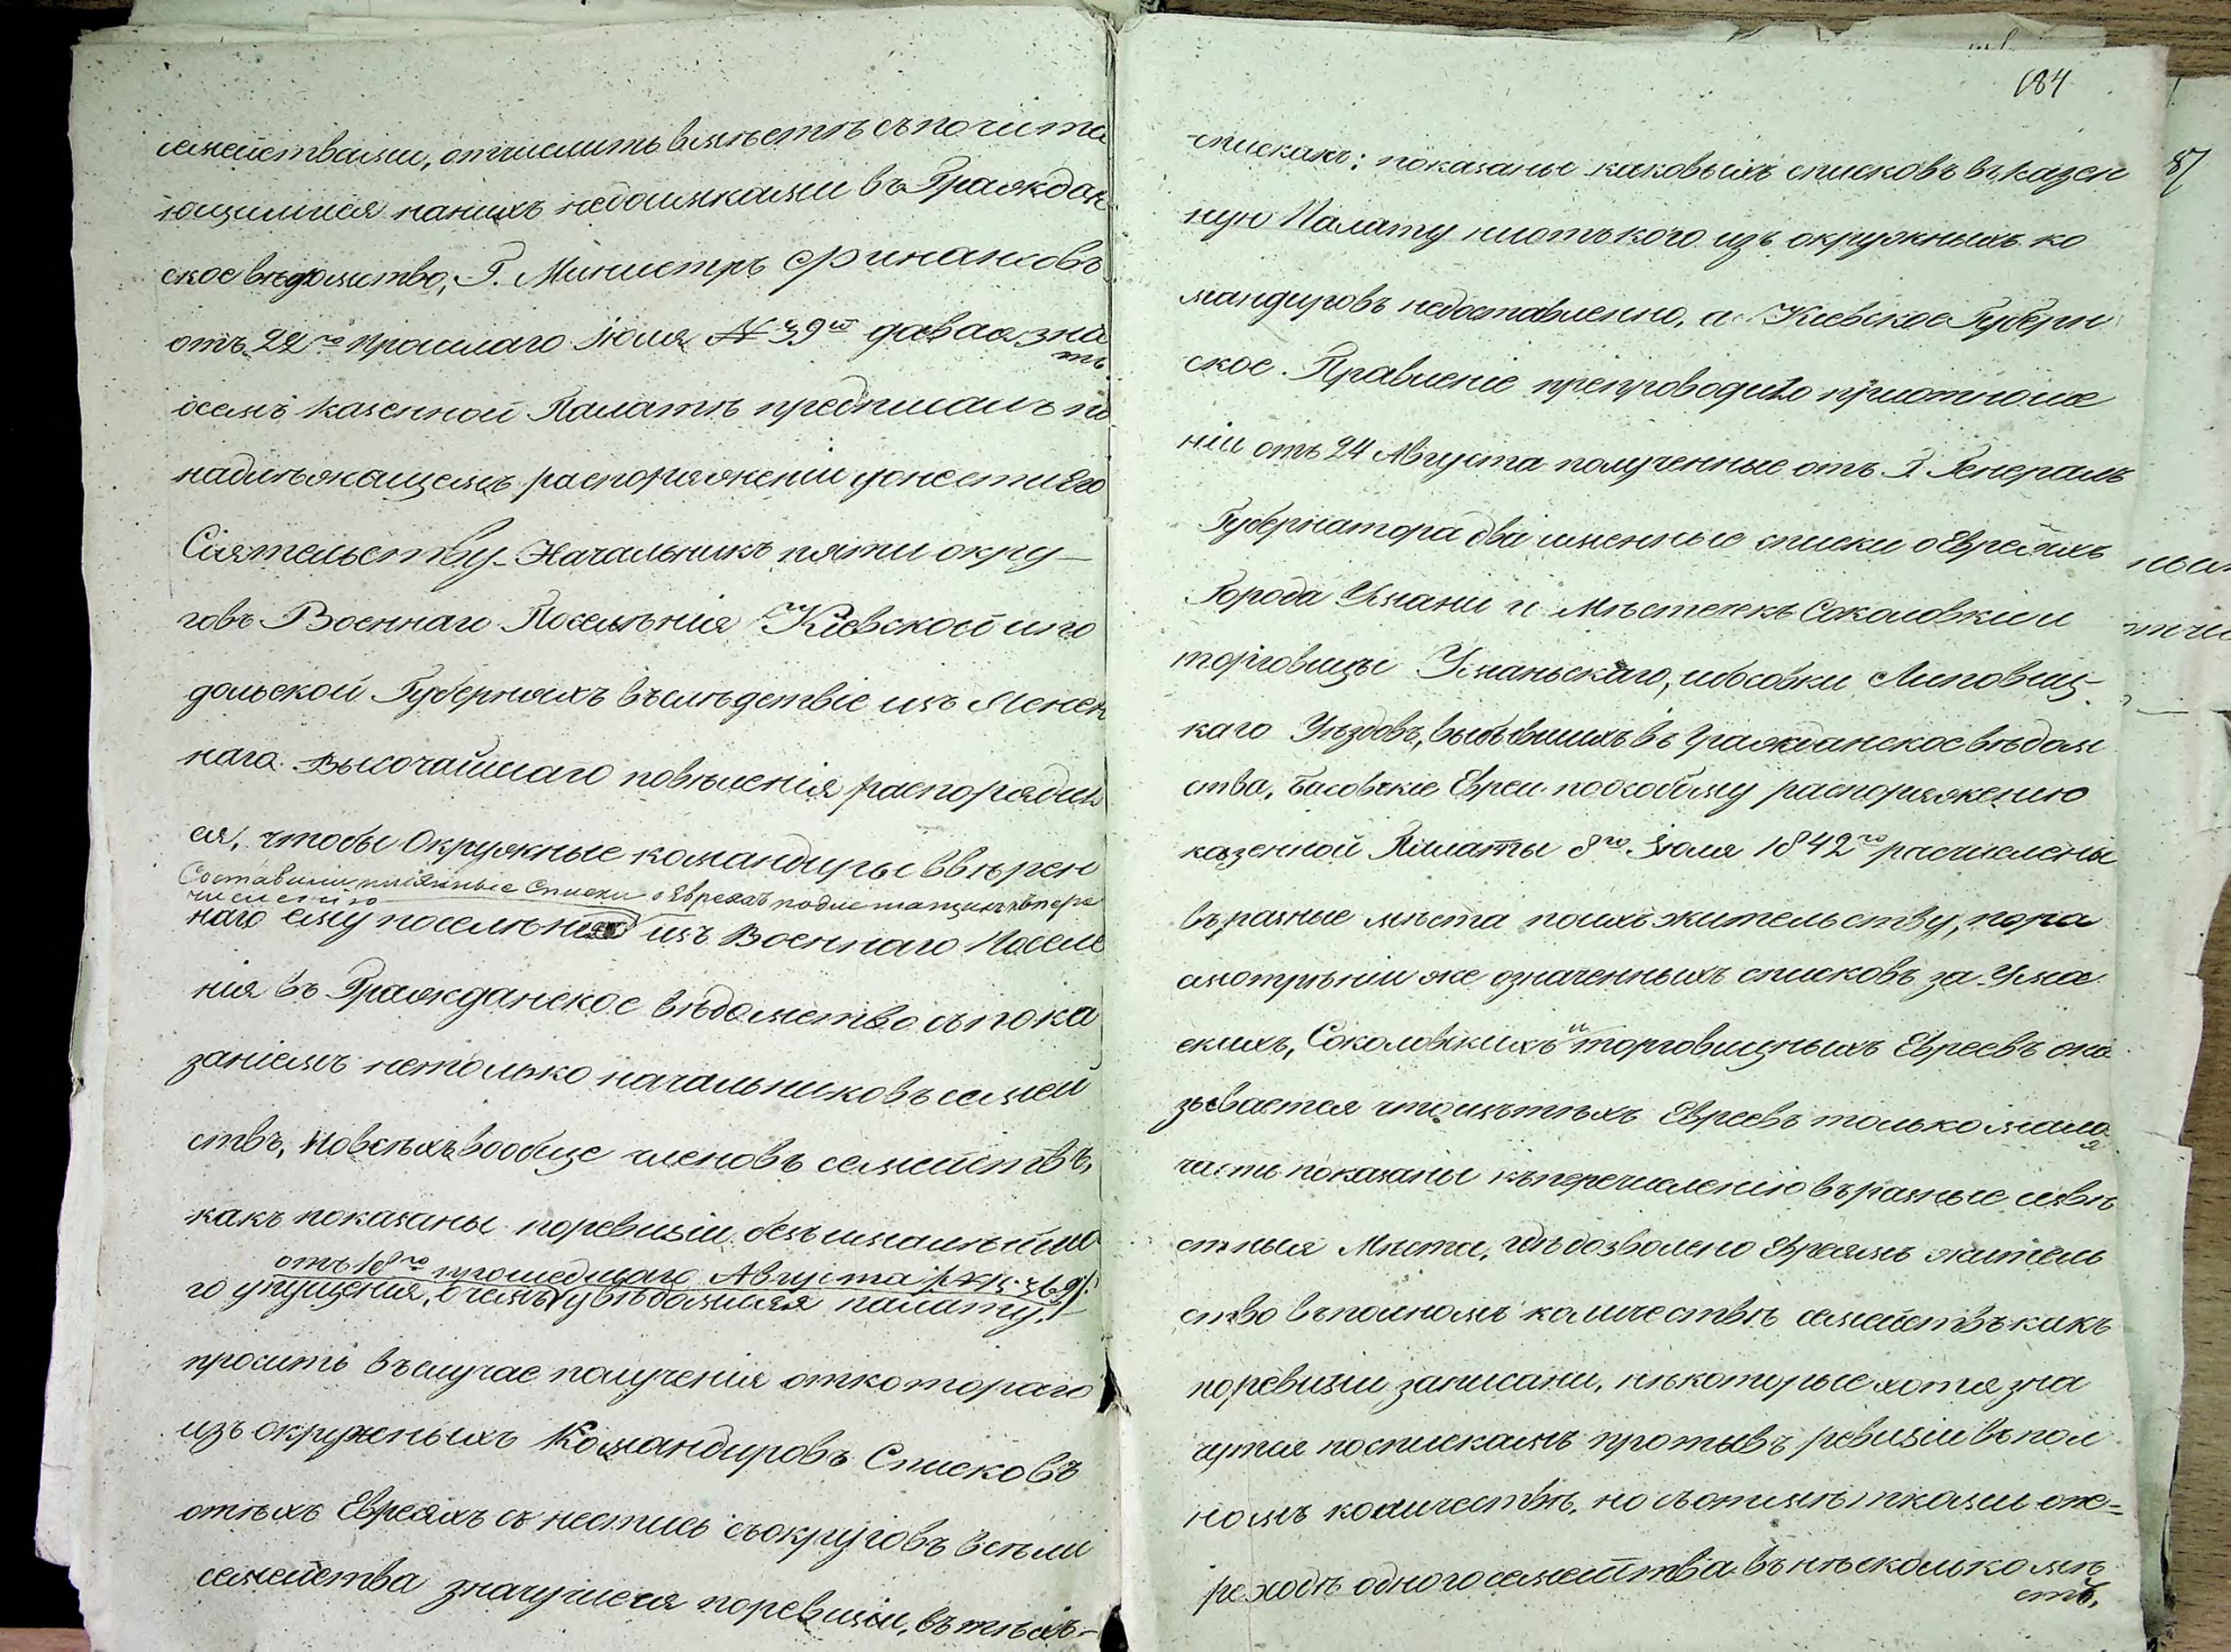 семействами, отчислить вместѣ съ почита
ющимися на нихъ недоимками въ Граждан
ское вѣдомство, Г. Министръ Финансовъ
отъ 22го прошлаго Іюля № 39ю давая зна
ть
о семъ Казенной Палатѣ предписалъ по
надлѣжащемъ распоряженіи донести Его
Сіятельству. Начальникъ пяти окру-
говъ Военнаго Поселѣнія Кіевской и По
дольской Губерніяхъ въ слѣдствіе изъяснен
наго Высочайшаго повѣленія распорядил
ся, чтобы Окружные командиры ввѣрен
Составили имянные Списки о Евреяхъ подлежащихъ къ пере
численію
наго ему поселѣнія изъ Военнаго Поселе
нія въ Гражданское вѣдомство съ пока
заніемъ не только начальниковъ семей
ствъ, но всѣхъ вообще членовъ семействъ,
какъ показаны по ревизіи безъ малѣйша
отъ 18го прошедшаго Августа №
го упущения, о чемъ увѣдомляя палату,
просить въ случае получения от котораго
изъ окружныхъ Командировъ Списковъ
о тѣхъ Евреяхъ снестись съ округовъ Всѣ ли
семейства значущиеся по ревизіи, въ тѣхъ-
184
спискахъ: показаны каковыхъ списковъ въ Казен
ную Палату ни отъ кого изъ окружныхъ ко
мандировъ не доставленно, а Киевское Губерн
ское Правленіе препроводило при отноше
ніи отъ 24 Августа полученные отъ Г. Генералъ
Губернатора два именные списки о Евреяхъ
Города Умани и Мѣстечекъ Соколовки и
торговицы Уманьскаго, Липовец
каго Уѣздовъ, выбывшихъ въ Гражданское вѣдом
ства, Босовские Евреи по особому распоряжению
казенной Палаты 8го Іюля 1842го расчислены
въ разные мѣста по ихъ жительству, по ра
смотрѣніи же означенныхъ списковъ за Уман
скихъ, Соколовскихъ и торговицныхъ Евреевъ ока
зывается что изъ тѣхъ Евреевъ только мала
я
часть показаны къ перечислению въ разные извѣ
стныя Мѣста, гдѣ дозволено Евреямъ житель
ство въ полномъ количествѣ семействъ какъ
по ревизии записаны, нѣкоторые хотя зна
чутся по спискамъ противъ ревизіи въ пол
номъ количествѣ, но съ отмѣтками о пе=
реходѣ одного семейства въ нѣсколько мѣ
стъ,
87